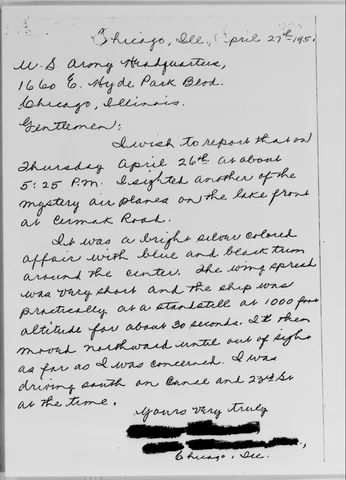 Chicago, Ill., April 27th 195
U. S. Army Headquarters,
1660 E. Hyde Park Blvd.
Chicago, Illinois.
Gentlemen:
I wish to report that on
Thursday April 26th at about
5:25 P.M. I sighted another of the
mystery air planes on the lake front
at Cermak Road.
It was a bright silver colored
affair with blue and black trim
around the center. The wing spread
was very short and the ship was
practically at a standstill at 1000 foot
altitude for about 30 seconds. It then
moved northward until out of sight
as far as I was concerned. I was
driving south on Canal and 23rd St
at the time.
Yours Very Truly
Chicago, Ill.